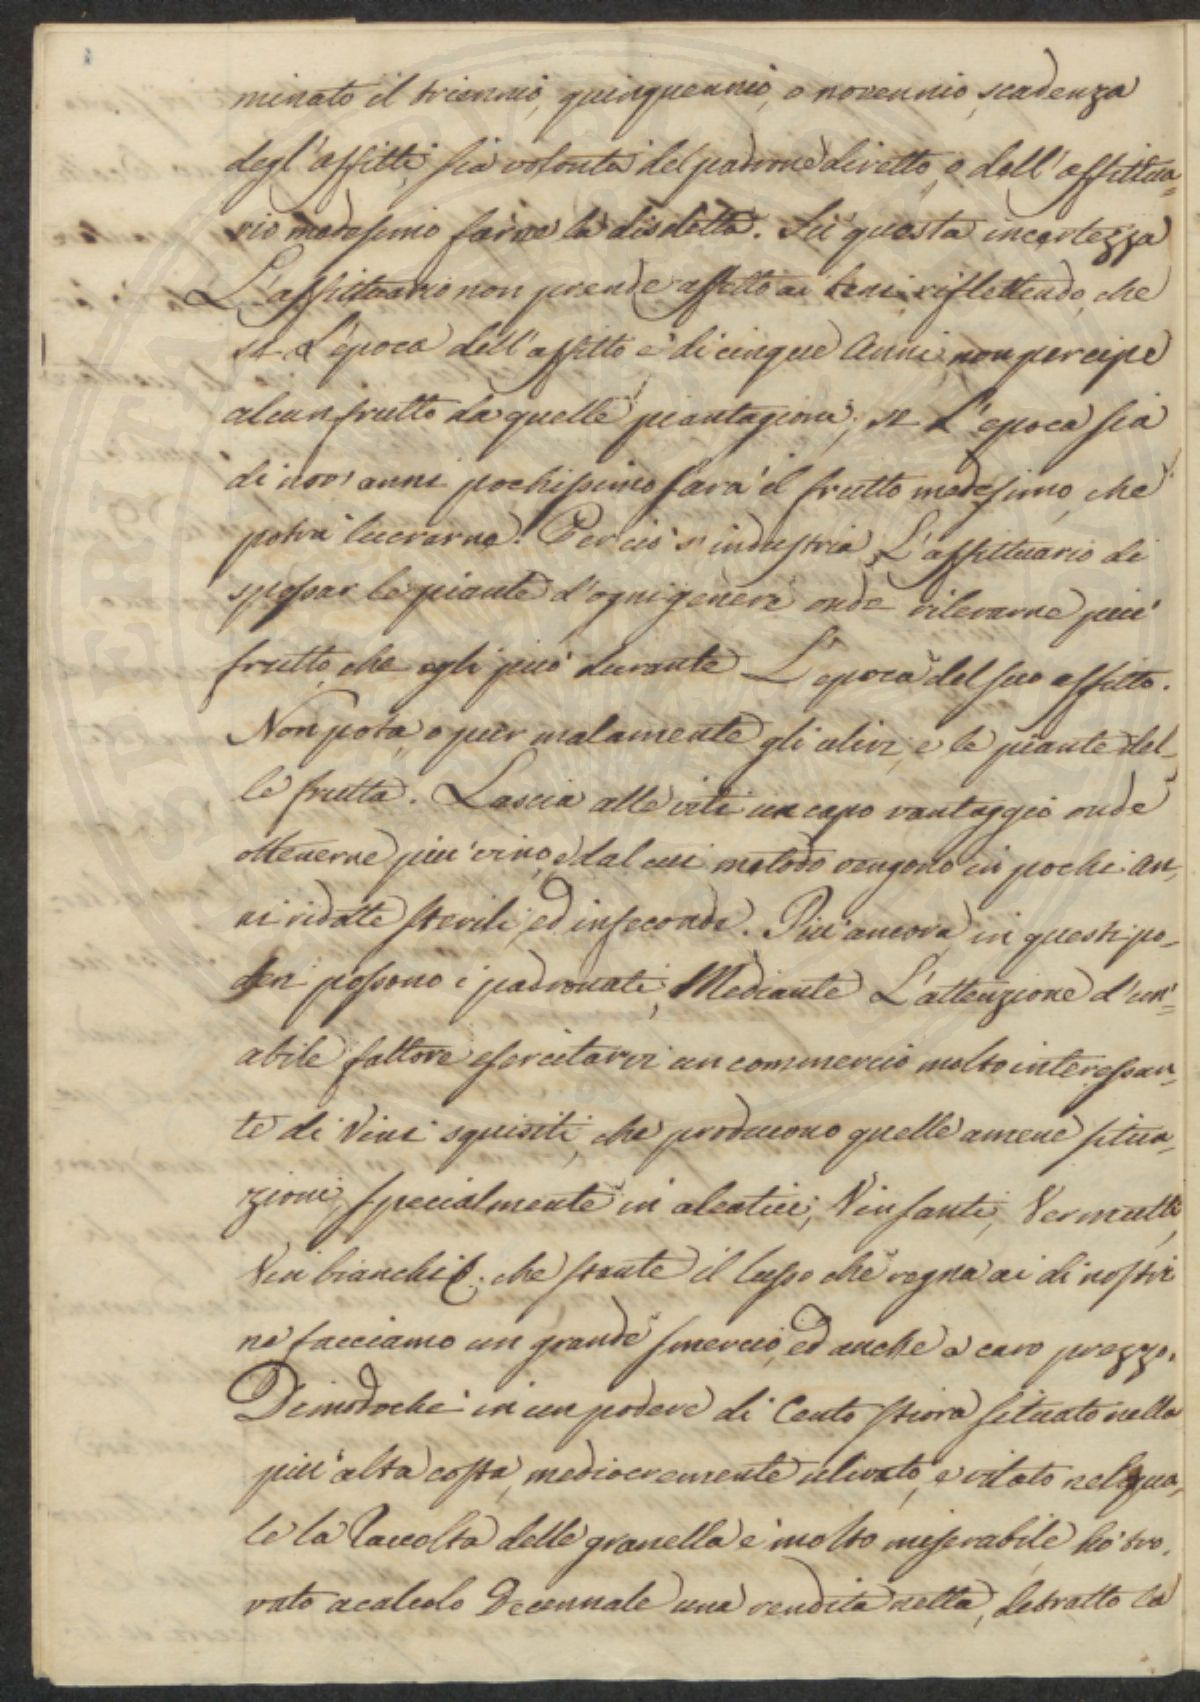 minato il triennio, quinquennio, o novennio, scadenza
degl'affitti, sia volontà del padrone diretto, o dell'affittua=
rio medesimo farne la disdetta. Su questa incertezza
L'affittuario non prende affetto ai beni, riflettendo, che
se L'epoca dell'affitto è di cinque Anni, non percipe
alcun frutto da quelle piantagioni; se L'epoca sia
di nov'anni pochissimo sarà il frutto medesimo, che
potrà lucrarne. Perciò s'industria L'affittuario di
spossar le piante d'ogni genere onde rilevarne più
frutto, che egli può durante L'epoca del suo affitto.
Non pota, o pur malamente gli ulivi, e le piante del-
le frutta. Lascia alle viti un capo vantaggio onde
ottenerne più vino, e dal cui metodo vengono in pochi an,
ni ridotte sterili, ed infeconde. Più ancora in questi po-
deri possono i padronati, Mediante L'attenzione d'un'
abile fattore esercitarvi un commercio molto interessan,
te di Vini squisiti, che producono quelle amene situa,
zioni, specialmente in aleatici, Vinsanti, Vermutti,
Vin bianchi &. che stante il lusso che regna ai dì nostri
ne facciamo un grande smercio, ed anche a caro prezzo.
Dimodochè in un podere di Cento stiora situato nella
più alta costa, mediocremente ulivato, e vitato nel qua,
le la Raccolta delle granella è molto miserabile ho tro,
vato a calcolo Decennale una rendita netta, detratto la